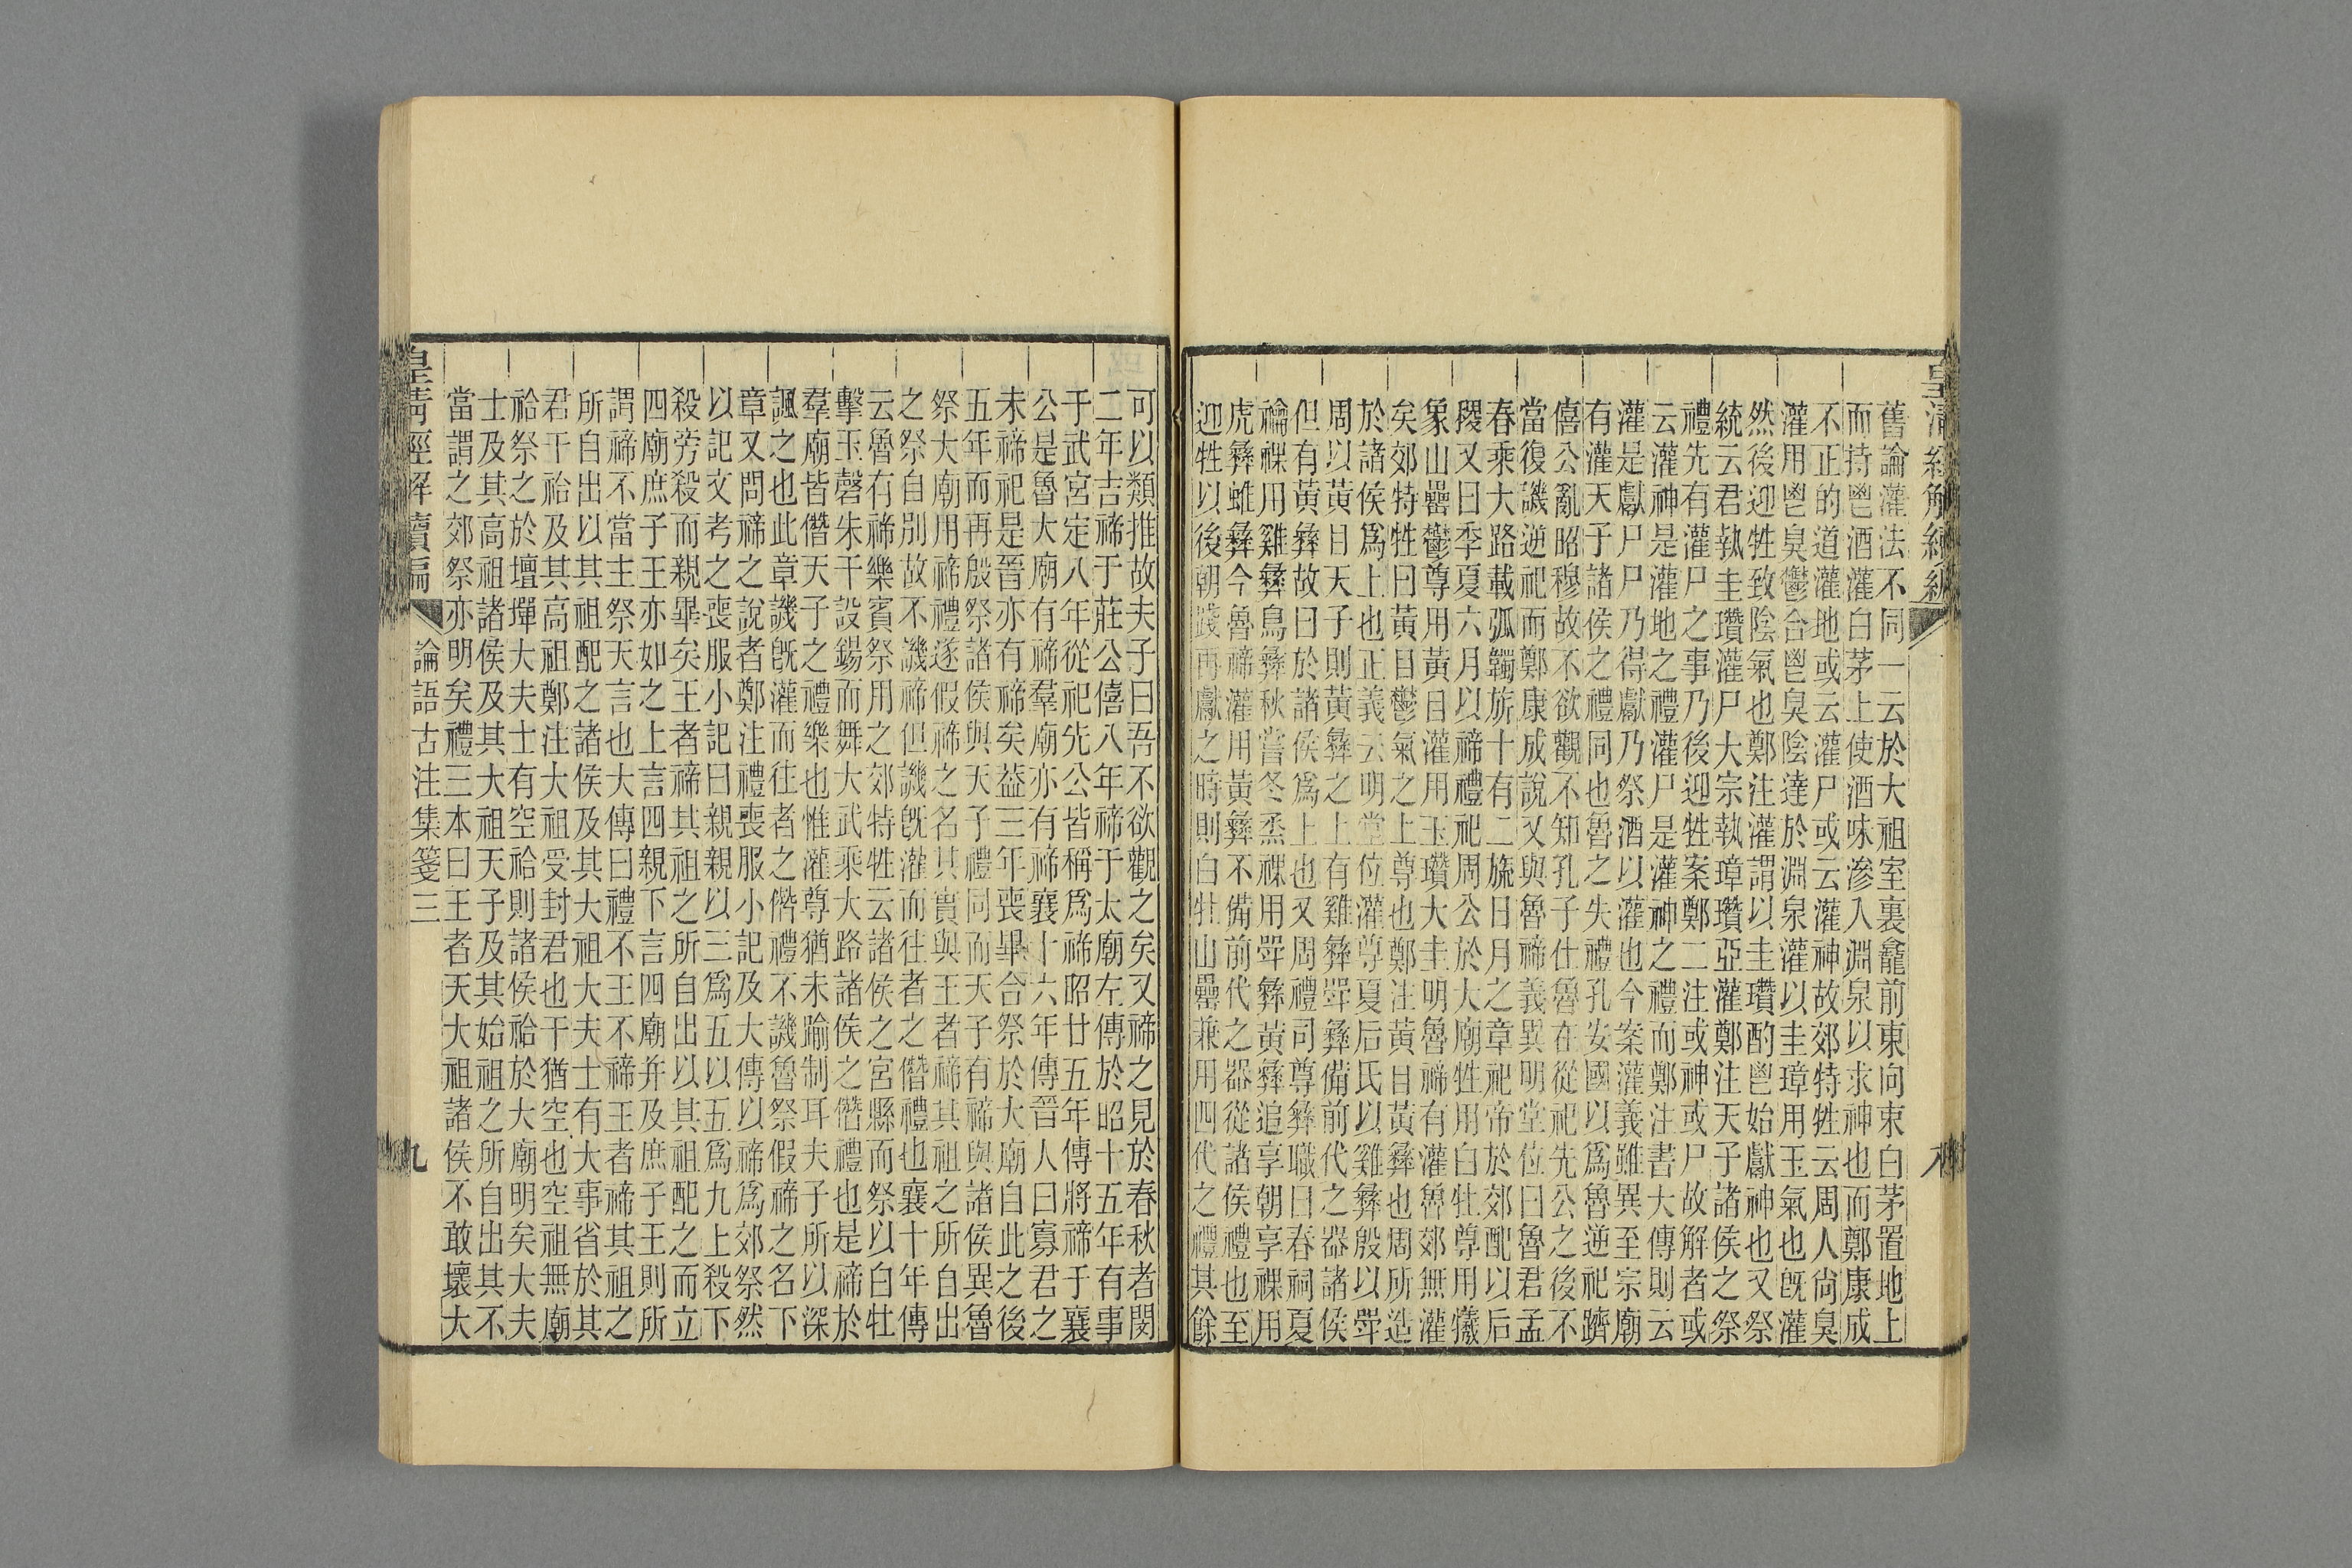 皇清經解續編
八
舊論灌法不同一云於大祖室裏龕前東向束白茅置地上
而持鬯酒灌白茅上使酒味滲入淵泉以求神也而鄭康成
不正的道灌地或云灌尸或云灌神故郊特牲云周人尚臭
灌用鬯臭鬱合鬯臭陰達於淵泉灌以圭璋用玉氣也旣灌
然後迎牲致陰氣也鄭注灌謂以圭瓚酌鬯始獻神也又祭
統云君執圭瓚灌尸大宗執璋瓚亞灌鄭注天子諸侯之祭
禮先有灌尸之事乃後迎牲案鄭二注或神或尸故解者或
云灌神是灌地之禮灌尸是灌神之禮而鄭注書大傳則云
灌是獻尸尸乃得獻乃祭酒以灌也今案灌義雖異至宗廟
有灌天子諸侯之禮同也魯之失禮孔安國以爲魯逆祀躋
僖公亂昭穆故不欲觀不知孔子仕魯在從祀先公之後不
當復譏逆祀而鄭康成說又與魯禘義異明堂位曰魯君孟
春乘大路載弧韣旂十有二旒日月之章祀帝於郊配以后
稷又曰季夏六月以禘禮祀周公於大廟牲用白牡尊用犧
象山罍鬱尊用黃目灌用玉瓚大圭明魯禘有灌魯郊無灌
矣郊特牲曰黃目鬱氣之上尊也鄭注黃目黃彝也周所造
於諸侯爲上也正義云明堂位灌尊夏后氏以雞彝殷以斝
周以黃目天子則黃彝之上有雞彝斝彝備前代之器諸侯
但有黃彝故曰於諸侯爲上也又周禮司尊彝職曰春祠夏
禴祼用雞彝鳥彝秋嘗冬烝祼用斝彝黃彝追享朝享祼用
虎彝蜼彝今魯禘灌用黃彝不備前代之器從諸侯禮也至
迎牲以後朝踐再獻之時則白牡山罍兼用四代之禮其餘
可以類推故夫子曰吾不欲觀之矣又禘之見於春秋者閔
二年吉禘于莊公僖八年禘于太廟左傳於昭十五年有事
于武宮定八年從祀先公皆稱爲禘昭廿五年傳將禘于襄
公是魯大廟有禘羣廟亦有禘襄十六年傳晉人曰寡君之
未禘祀是晉亦有禘矣葢三年喪畢合祭於大廟自此之後
五年而再殷祭諸侯與天子禮同而天子有禘與諸侯異魯
祭大廟用禘禮遂假禘之名其實與王者禘其祖之所自出
之祭自別故不譏禘但譏旣灌而往者之僭禮也襄十年傳
云魯有禘樂賓祭用之郊特牲云諸侯之宮縣而祭以白牡
擊玉磬朱干設鍚而舞大武乘大路諸侯之僭禮也是禘於
羣廟皆僭天子之禮樂也惟灌尊猶未踰制耳夫子所以深
諷之也此章譏旣灌而往者之僭禮不譏魯祭假禘之名下
章又問禘之說者鄭注禮喪服小記及大傳以禘爲郊祭然
以記文考之喪服小記曰親親以三爲五以五爲九上殺下
殺旁殺而親畢矣王者禘其祖之所自出以其祖配之而立
四廟庶子王亦如之上言四親下言四廟并及庶子王則所
謂禘不當主祭天言也大傳曰禮不王不禘王者禘其祖之
所自出以其祖配之諸侯及其大祖大夫士有大事省於其
君干祫及其高祖鄭注大祖受封君也干猶空也空祖無廟
祫祭之於壇墠大夫士有空祫則諸侯祫於大廟明矣大夫
士及其高祖諸侯及其大祖天子及其始祖之所自出其不
當謂之郊祭亦明矣禮三本曰王者天大祖諸侯不敢壞大
皇清經解續編
論語古注集箋三
九